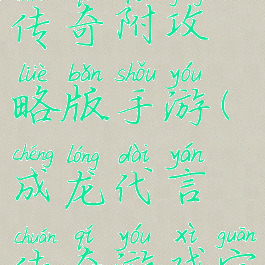 传奇附攻
lüè bǎn shǒu yóu
略版手游(
chéng lóng dài yán
成龙代言
chuán qí yóu xì guān
传奇游戏官